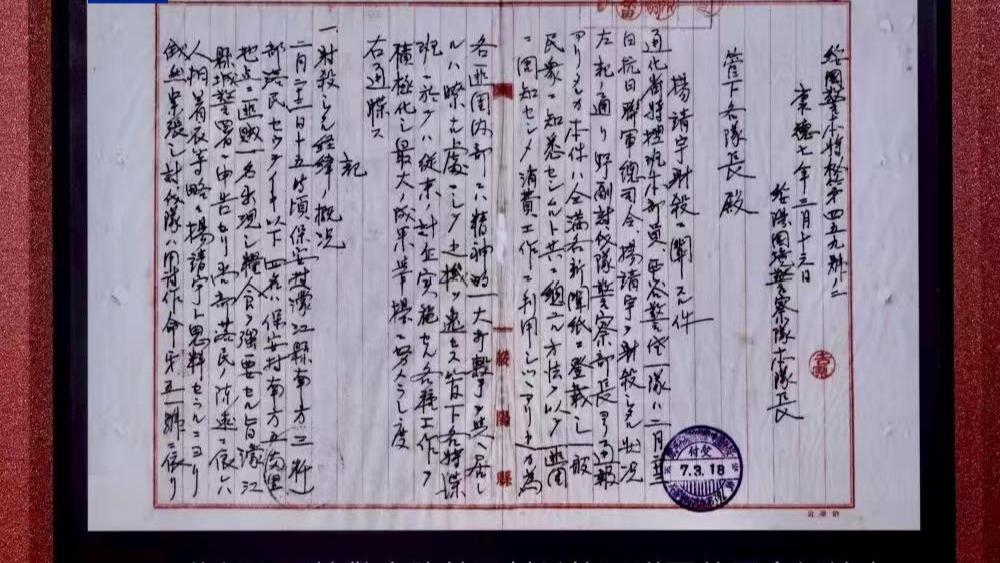 綏國警本特秘第四五九號ノ二
康德七年三月十六日
綏陽國境警察隊本隊長
管下各隊長殿
楊靖宇射殺ニ關スル件
通化省特捜班本部員西谷警佐一隊ハ二月二十三
日抗日聯軍總司令、楊靖宇ヲ射殺シタル狀況
左記ノ通リ野副討伐隊警察部長ヨリ通報
アリタルガ本件ハ全滿各新聞紙ニ登載シ一般
民衆ニ知悉セシムルト共ニ總ユル方法ヲ以テ匪團
ニ周知セシメ消費工作ニ利用シツツアリ
各匪團內部ニハ精神的一大打擊ヲ與ヘ居レ
ルハ瞭ナル處ニシテ此機ヲ逸セズ管下各特捜
班ニ於テハ從來ノ計企実施セル各種工作ヲ
積極化シ最大ノ成果挙揚ニ努メラレ度
右通牒ス
記
一、射殺シタル經緯ノ概況
二月二十三日十五時頃保安村濛江縣南方三粁
部落民 以下四名ハ保安村南方五百米
地点ニ匪賊一名出現シ糧食ヲ強要セル旨濛江
縣城警署ニ申告セリ 部落民ノ陳述ニ依ハ
人相着衣等略々楊靖宇ト思料セラルルニヨリ
緊張シ討伐隊ハ 作命第五一號ニ依リ
綏陽縣
受付
7.3.18